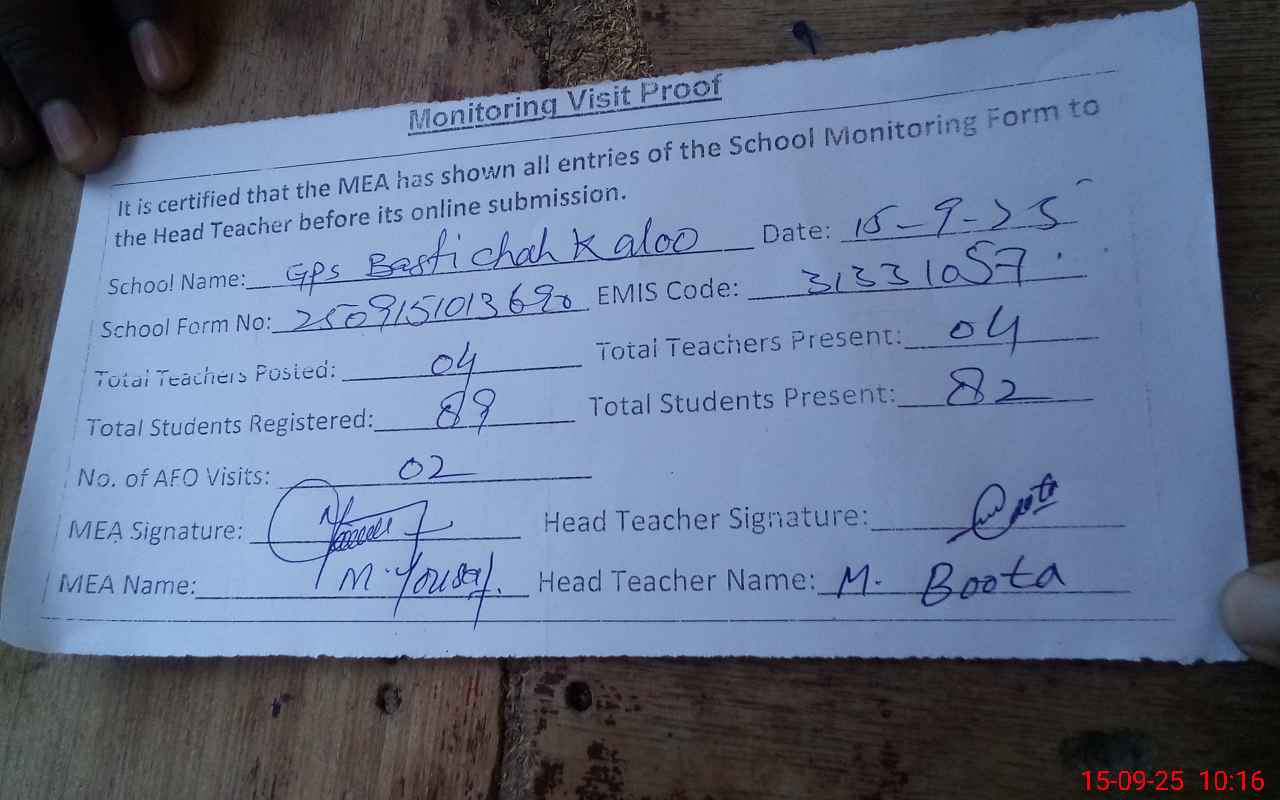 Monitoring Visit Proof
It is certified that the MEA has shown all entries of the School Monitoring Form to
the Head Teacher before its online submission.
School Name: GPS Basti chah Kaloo Date: 15-9-25
School Form No: 2509151013690 EMIS Code: 31331057
Total Teachers Posted: 04 Total Teachers Present: 04
Total Students Registered: 89 Total Students Present: 82
No. of AFO Visits: 02
MEA Signature: Head Teacher Signature:
MEA Name: M. Yousaf. Head Teacher Name: M. Boota
15-09-25 10:16